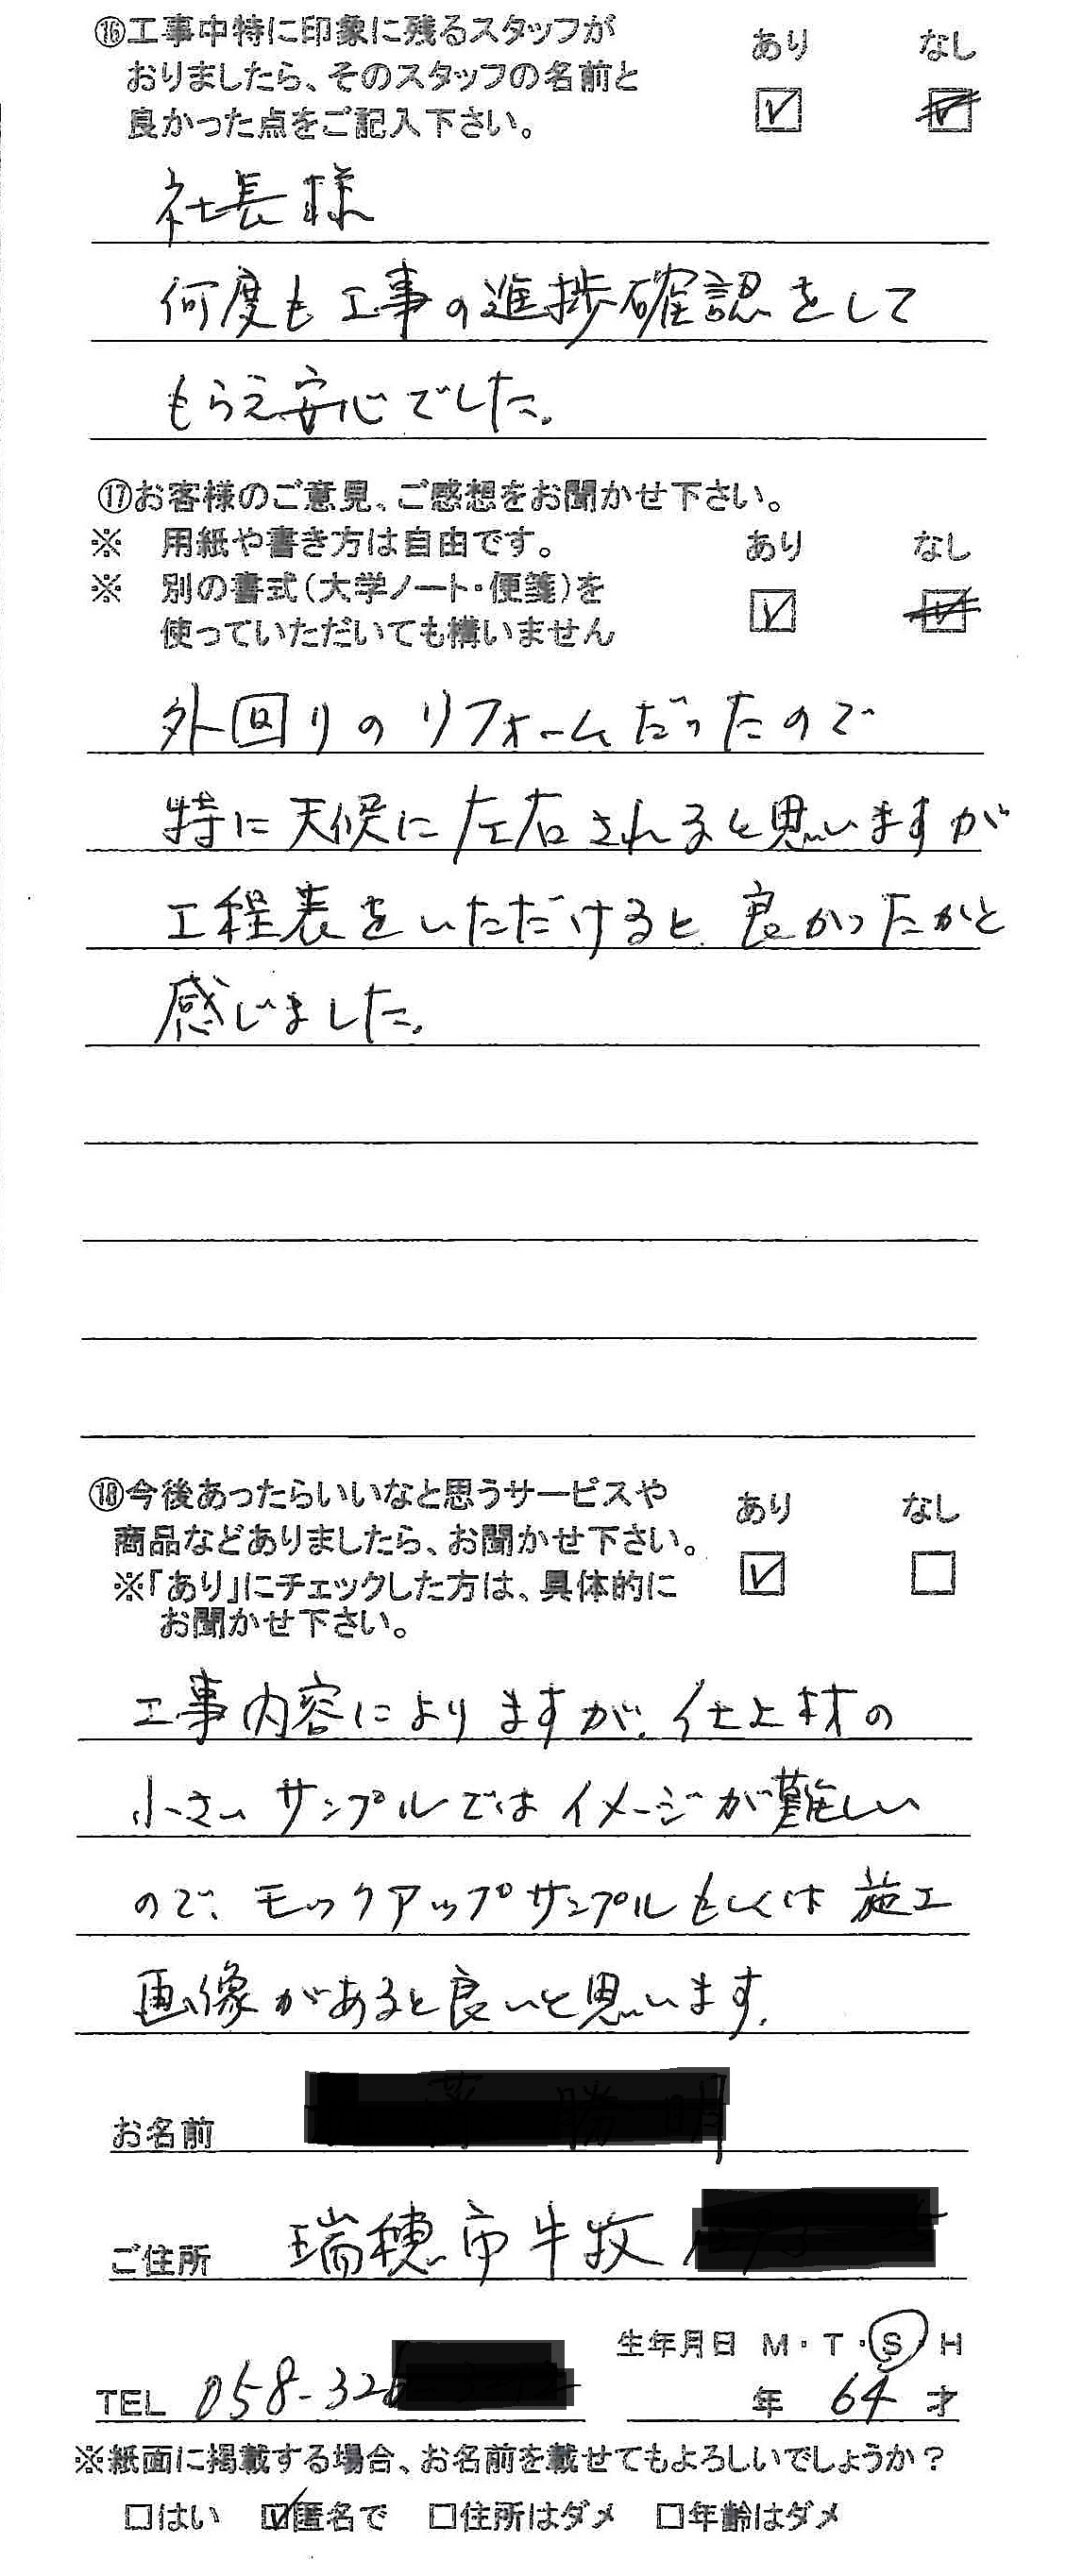 ⑯工事中特に印象に残るスタッフが
おりましたら、そのスタッフの名前と
良かった点をご記入下さい。
あり なし
社長様
何度も工事の進捗確認をして
もらえ安心でした。
⑰お客様のご意見、ご感想をお聞かせ下さい。
※ 用紙や書き方は自由です。
※ 別の書式(大学ノート・便箋)を
使っていただいても構いません
あり なし
外回りのリフォームだったので
特に天候に左右されると思いますが
工程表をいただけると良かったかと
感じました。
⑱今後あったらいいなと思うサービスや
商品などありましたら、お聞かせ下さい。
※「あり」にチェックした方は、具体的に
お聞かせ下さい。
あり なし
工事内容によりますが、仕上材の
小さいサンプルではイメージが難しい
ので、モックアップサンプルもしくは施工
画像があると良いと思います。
お名前
ご住所 瑞穂市牛牧
TEL 058-326
生年月日 M・T・S・H
年 64 才
※紙面に掲載する場合、お名前を載せてもよろしいでしょうか?
□はい ☑匿名で □住所はダメ □年齢はダメ